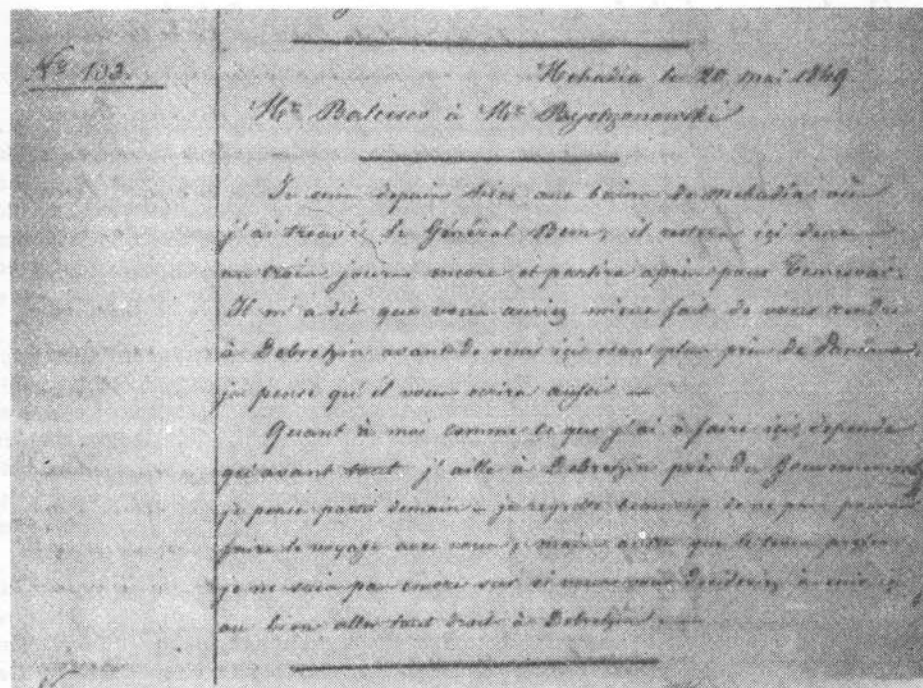 Nº 133.
Mehadia le 20 mai 1849
Mr Balcesco à Mr Bystrzonowski
Je suis depuis hier aux bains de Mehadia où
j'ai trouvé le Général Bem, il restera içi deux
ou trois jours encore et partira après pour Temesvar.
Il m'a dit que vous auriez mieux fait de vous rendre
à Debretzin avant de venir içi étant plus près de
je pense qu'il vous écrira aussi —
Quant à moi comme ce que j'ai à faire içi, depend
qu'avant tout j'aille à Debretzin près du Gouvernement
je pense partir demain — je regrette beaucoup de ne pas pouvoir
faire le voyage avec vous, mais outre que le tems presse
je ne sais pas encore si vous vous deciderez à venir içi
ou bien aller tout droit à Debretzin —